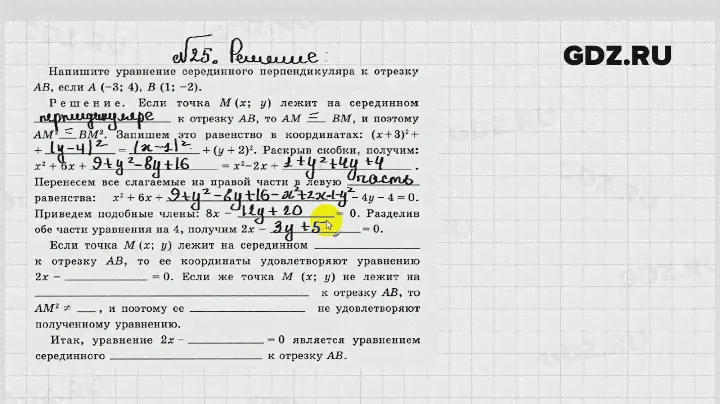 №25. Решение:
GDZ.RU
Напишите уравнение серединного перпендикуляра к отрезку
AB, если A (−3; 4), B (1; −2).
Решение. Если точка M (x; y) лежит на серединном
перпендикуляре к отрезку AB, то AM = BM, и поэтому
AM² = BM². Запишем это равенство в координатах: (x+3)²+
+ (y−4)² = (x−1)² + (y+2)². Раскрыв скобки, получим:
x² + 6x + 9+y²−8y+16 = x²−2x + 1+y²+4y+4.
Перенесем все слагаемые из правой части в левую часть
равенства: x² + 6x + 9+y²−8y+16−x²+2x−1−y² − 4y − 4 = 0.
Приведем подобные члены: 8x − 12y + 20 = 0. Разделив
обе части уравнения на 4, получим 2x − 3y + 5 = 0.
Если точка M (x; y) лежит на серединном ____
к отрезку AB, то ее координаты удовлетворяют уравнению
2x − ____ = 0. Если же точка M (x; y) не лежит на
____ к отрезку AB, то
AM² ≠ ____, и поэтому ее ____ не удовлетворяют
полученному уравнению.
Итак, уравнение 2x − ____ = 0 является уравнением
серединного ____ к отрезку AB.